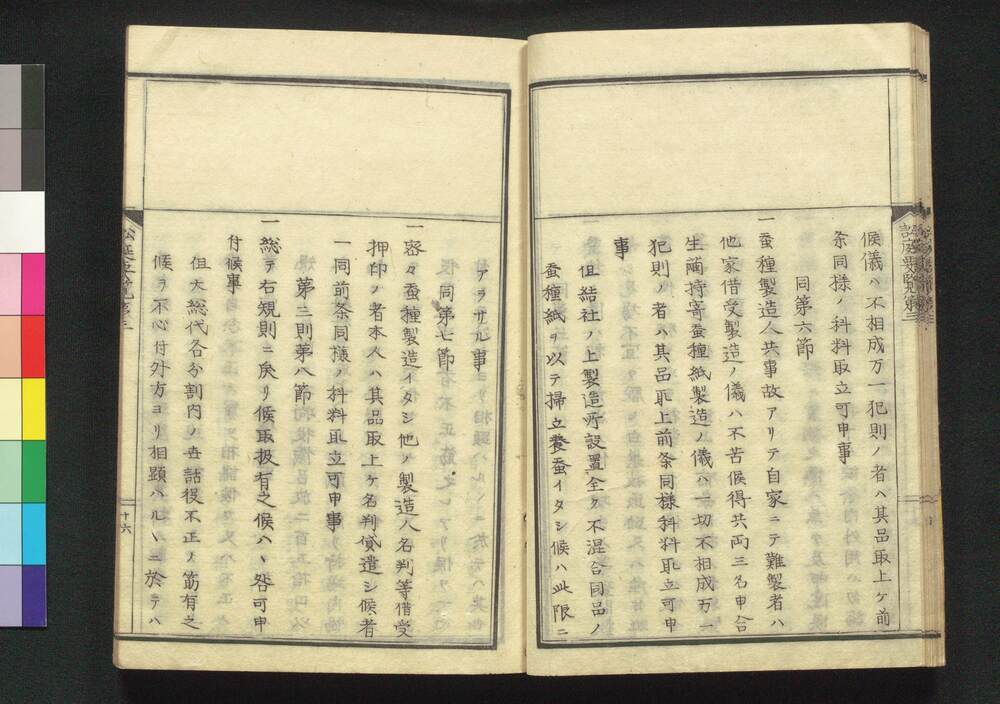 候儀ハ不相成万一犯則ノ者ハ其品取上ケ前
条同様ノ科料取立可申事
同第六節
一蚕種製造人共事故アリテ自家ニテ難製者ハ
他家借受製造ノ儀ハ不苦候得共両三名申合
生繭持寄蚕種紙製造ノ儀ハ一切不相成万一
犯則ノ者ハ其品取上前条同様科料取立可申
事
但結社ノ上製造所設置全ク不混合同品ノ
蚕種紙ヲ以テ掃立養蚕イタシ候ハ此限ニ
アラサル事
同第七節
一密々蚕種製造イタシ他ノ製造人名判等借受
押印ノ者本人ハ其品取上ケ名判貸遣シ候者
一同前条同様ノ科料取立可申事
第三則第八節
一総テ右規則ニ戻リ候取扱有之候ハヽ咎可申
付候事
但大総代各分割内ノ世話役不正ノ筋有之
候ヲ不心付外方ヨリ相顕ハルヽニ於テハ
訟庭要覧第三
十六